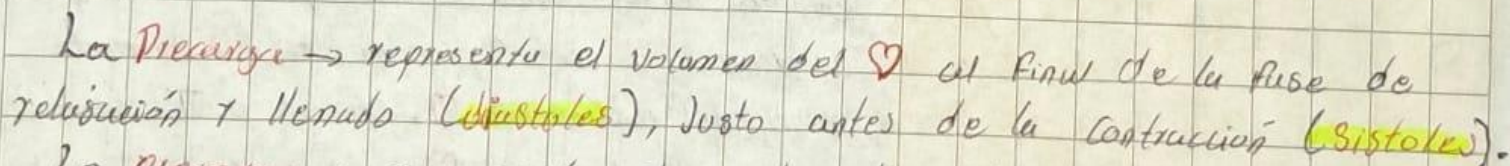 La Precarga → representa el volumen del ♡ al final de la fase de
relajación y llenado (diastoles), Justo antes de la contracción (sistoles).